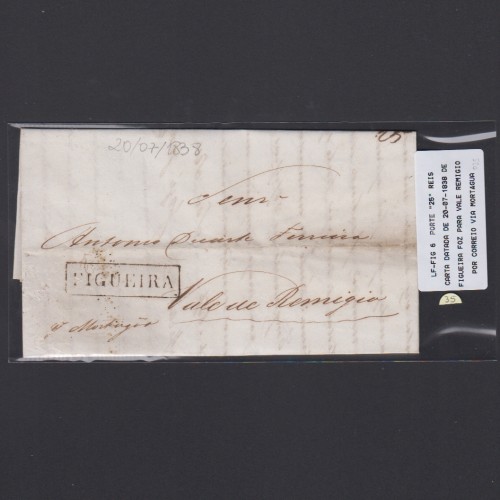 20/07/1838
25
Senr
Antonio Duarte Ferreira
FIGUEIRA
Vale de Remigio
p Mortagoa
LF-FIG 6 PORTE "25" REIS
CARTA DATADA DE 20-07-1838 DE
FIGUEIRA FOZ PARA VALE REMIGIO
POR CORREIO VIA MORTAGUA
35